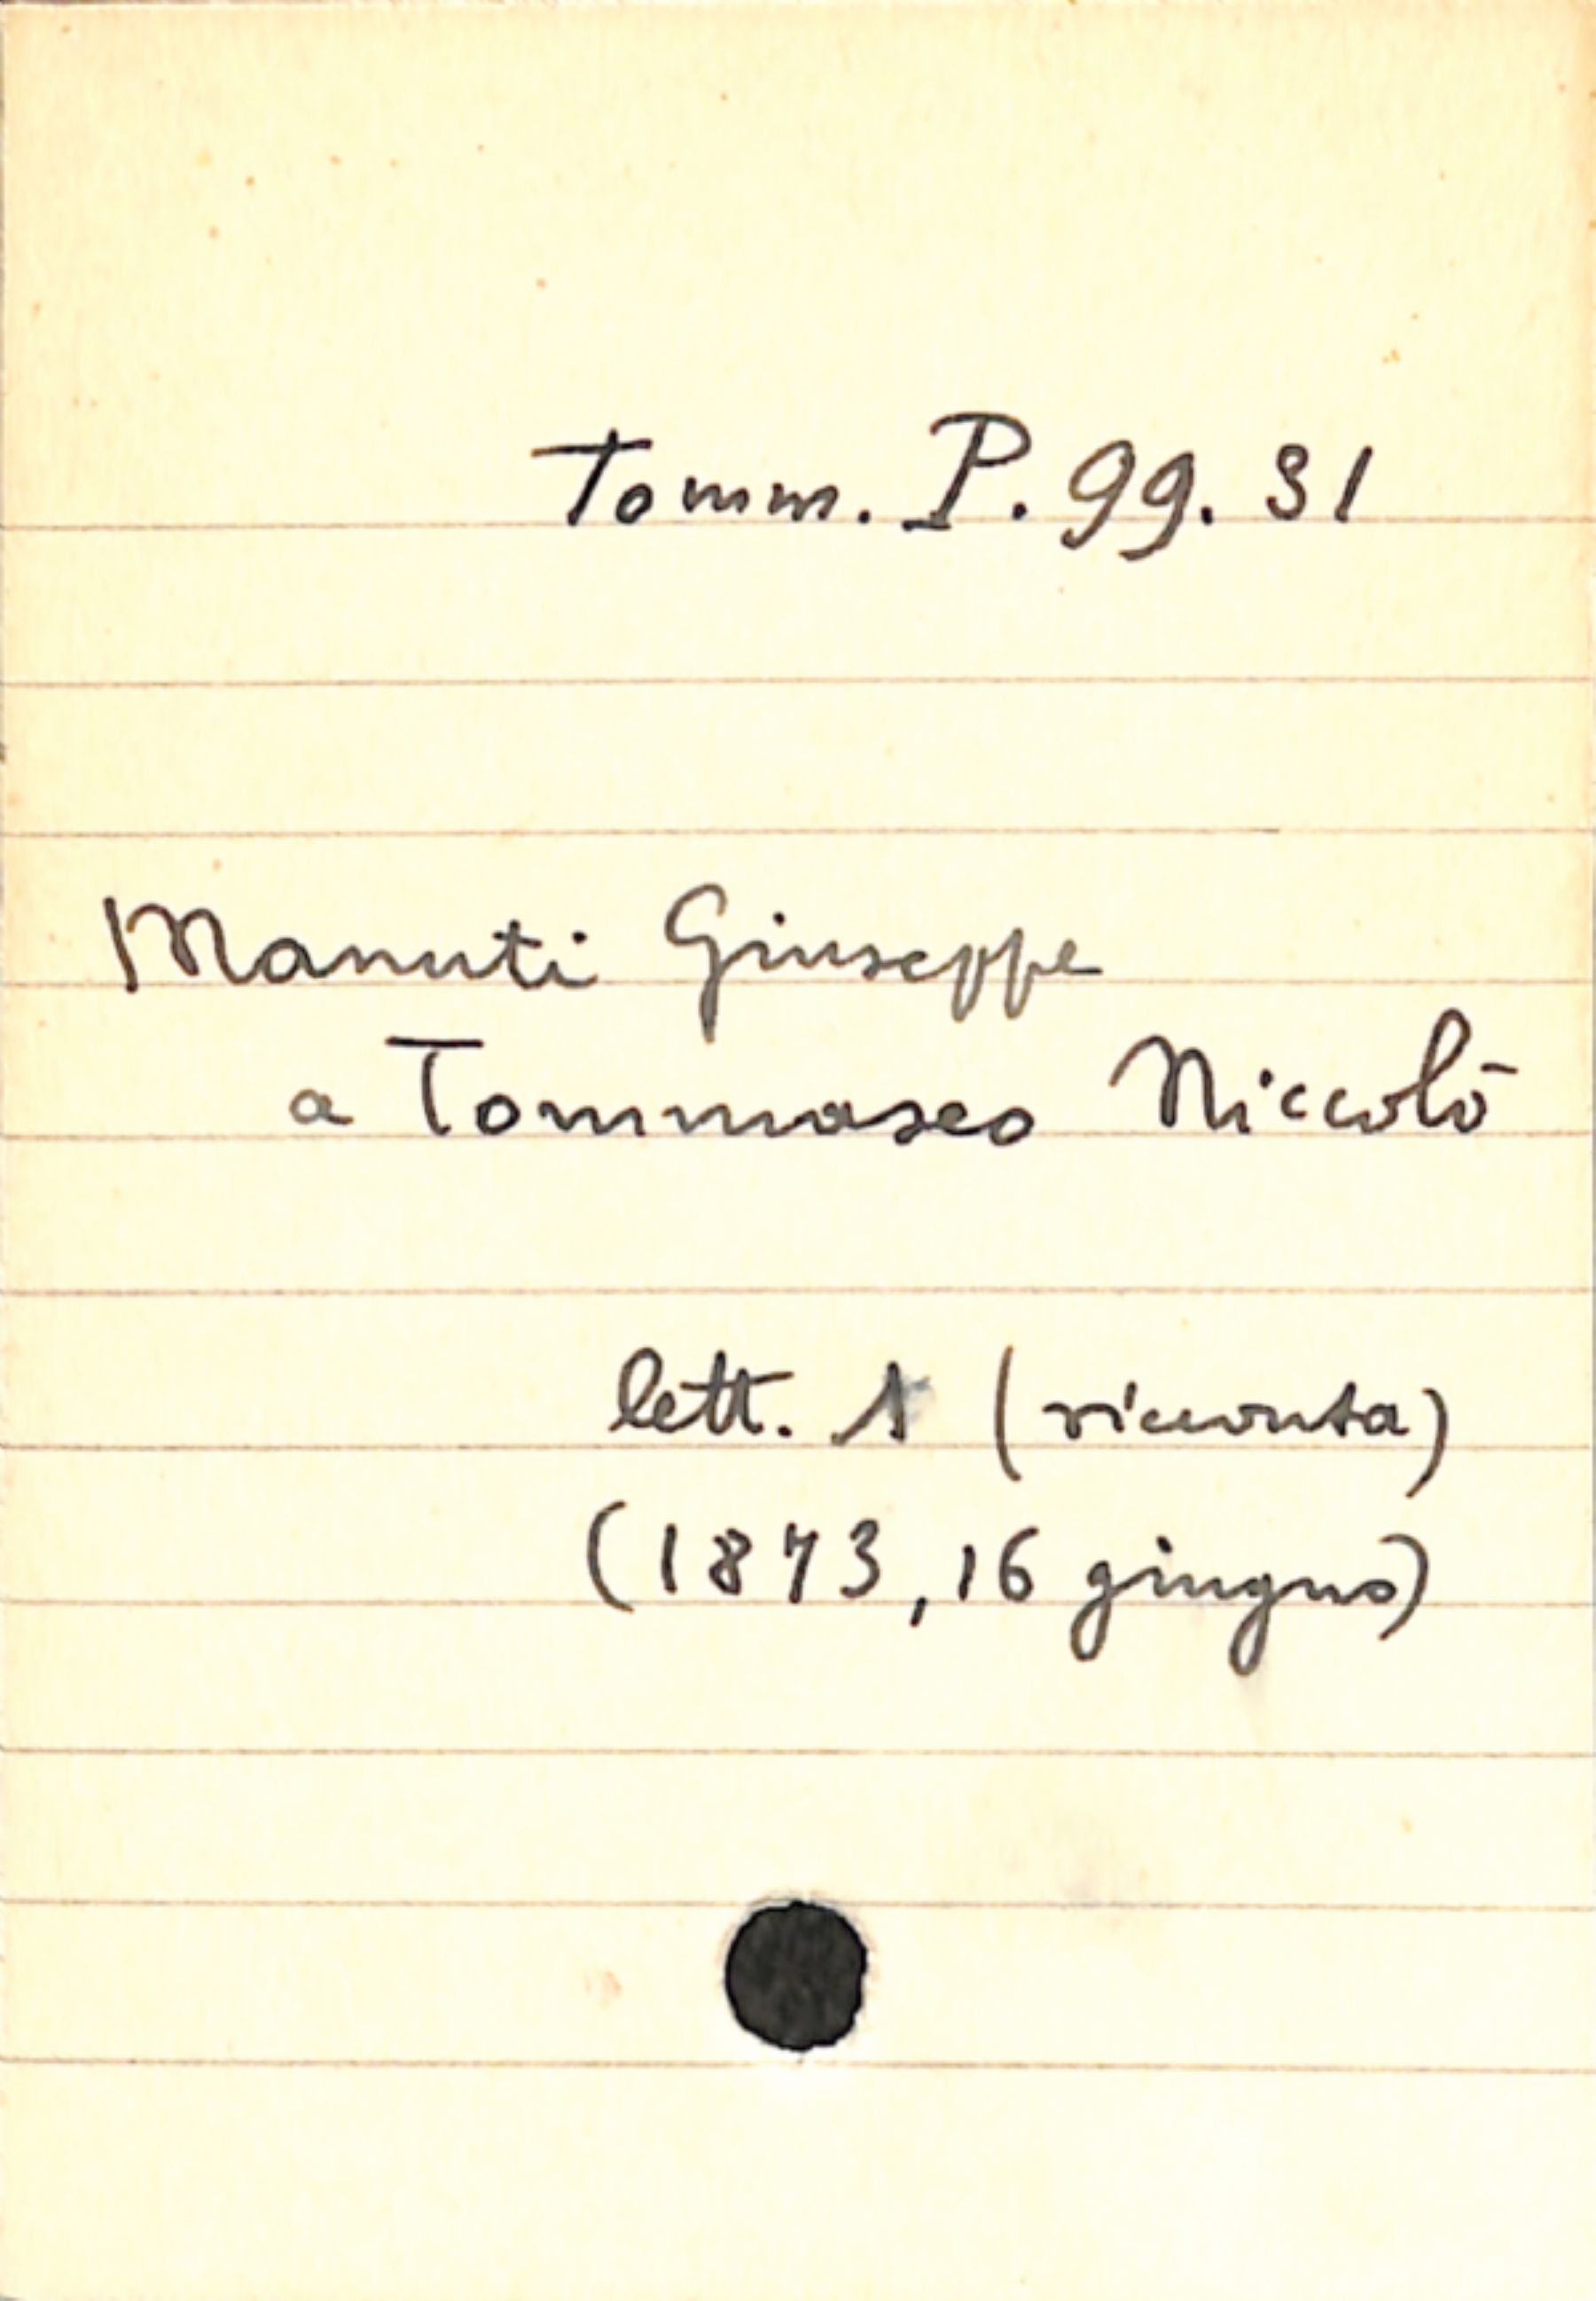 Tomm. P. 99. 31
Manuti Giuseppe
a Tommaseo Niccolò
lett. 1 (ricevuta)
(1873, 16 giugno)